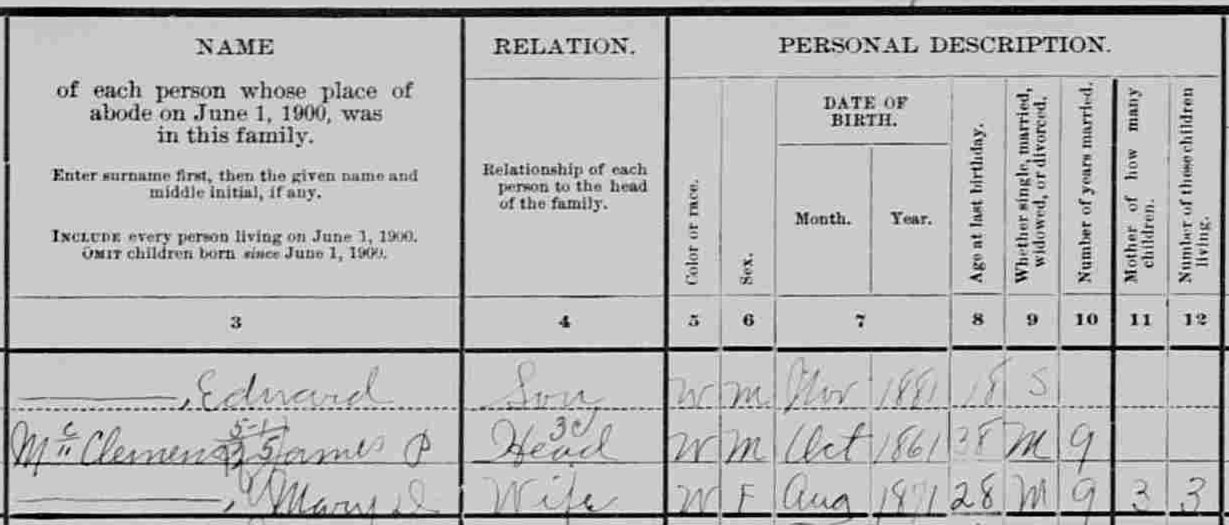 NAME
of each person whose place of
abode on June 1, 1900, was
in this family.
Enter surname first, then the given name and
middle initial, if any.
INCLUDE every person living on June 1, 1900.
OMIT children born since June 1, 1900.
RELATION.
Relationship of each
person to the head
of the family.
PERSONAL DESCRIPTION.
Color or race.
Sex.
DATE OF
BIRTH.
Month.
Year.
Age at last birthday.
Whether single, married,
widowed, or divorced.
Number of years married.
Mother of how many
children.
Number of these children
living.
3 4 5 6 7 8 9 10 11 12
———, Edward Son W M Nov 1881 18 S
McClemens James P Head W M Oct 1861 38 M 9
———, Mary D Wife W F Aug 1871 28 M 9 3 3